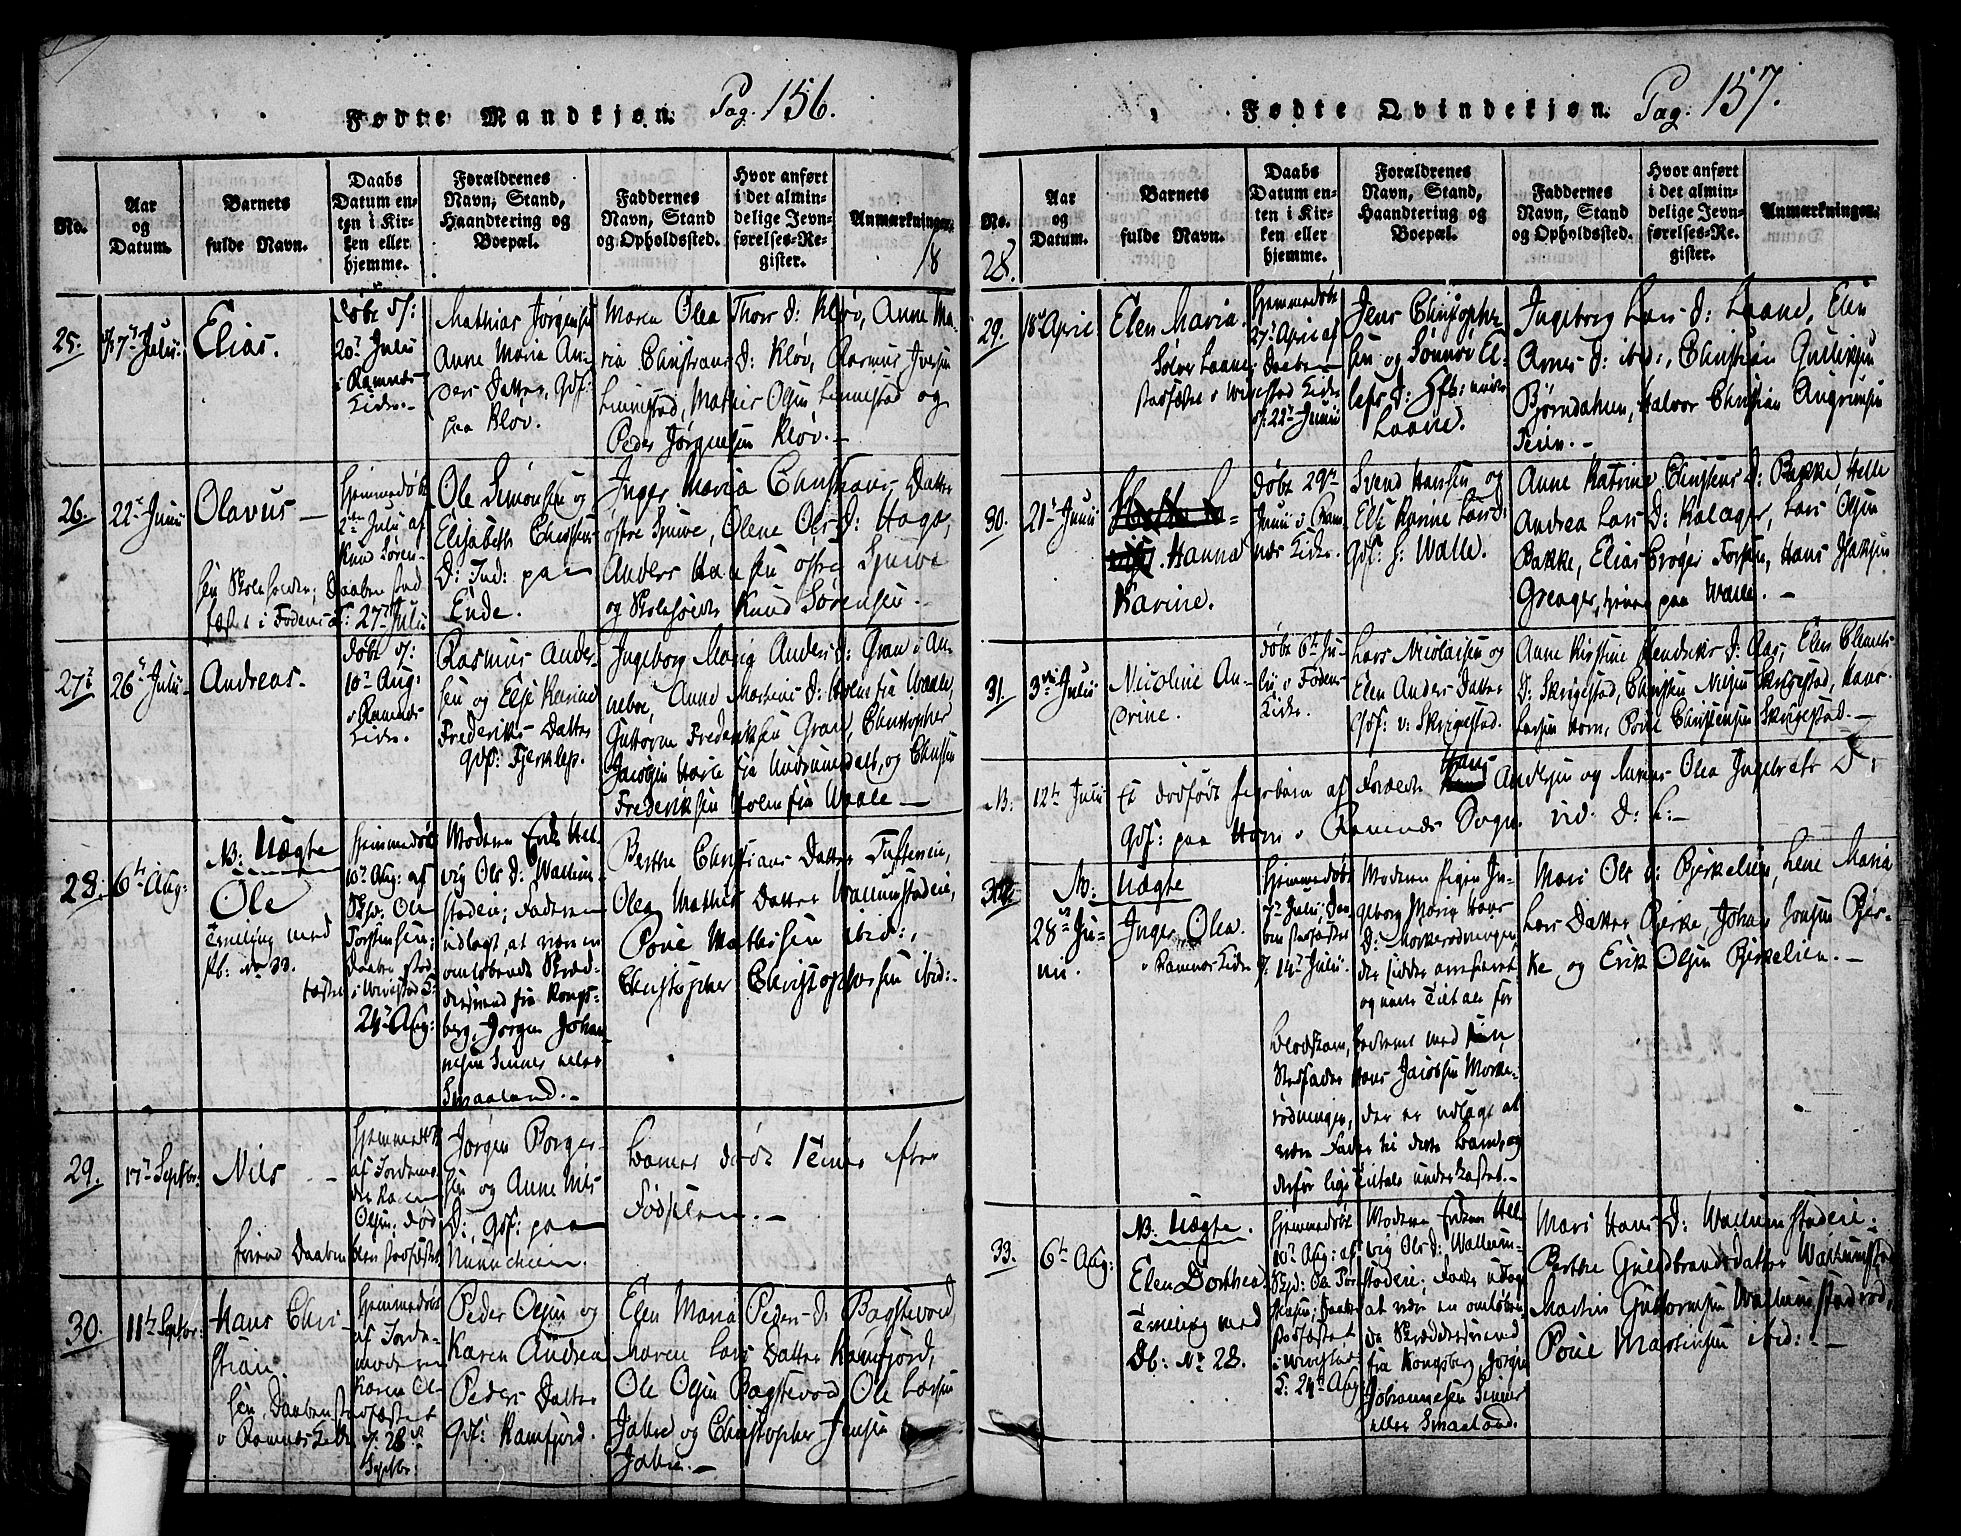 Fødte Mandkjøn. Pag. 156.
No.
Aar
og
Datum.
Barnets
fulde Navn.
Daabs
Datum en-
ten i Kir-
ken eller
hjemme.
Forældrenes
Navn, Stand,
Haandtering og
Boepæl.
Faddernes
Navn, Stand
og Opholdssted.
Hvor anført
i det almin-
delige Jevn-
førelses-Re-
gister.
Anmærkninger.
18
25.
7de Julii
Elias.
døbt
20de Julii
i Ramnæs
Kirke.
Mathias Jørgensen
Anne Maria An-
ders Datter, Gdf:
paa Kløv.
Maren Olea Thors D: Kløv, Anne Ma-
ria Christians D: Kløv, Rasmus Iversen
Linnestad, Mathis Olsen Linnestad og
Peder Jørgensen Kløv.
26.
22de Junii
Olavus
Hjemmedøbt
2den Julii af
Knud Søren-
sen Skoleholder; Daaben stad-
fæstet i Fodens
27de Julii
Ole Simonsen og
Elisabeth Christens
D: Ind: paa
Ende.
Inger Maria Christians Datter
østre Sjuve, Olene Ols D: Hogs,
Anders Hansen østre Sjuve
og Skoleholder Knud Sørensen.
27.
26de Julii
Andreas.
døbt
10de Aug:
i Ramnæs
Kirke.
Rasmus Ander-
sen og Else Karine
Frederiks Datter
Gdf: Fjereklep.
Ingeborg Maria Anders D: Gran i An-
neboe, Anne Martine D: Holm fra Waale,
Guttorm Frederiksen Gran, Christopher
Jacobsen fra Undrumsdal, og Christen
Frederiksen Holm fra Waale
28.
6te Aug:
NB: Uægte
Ole
Tvilling med
No 33.
Hjemmedøbt
10de Aug: af
Ole
Torstensen;
Daaben stad-
fæstet
i Wivestad K:
24de Aug:
Moderen Enke Hel-
vig Ols D: Wallum-
stadeie; Faderen
udlagt at være en
omløbende Skræd-
dersvend fra Kongs-
berg, Jørgen Johan-
nesen Simer eller
Smaaland.
Berthe Christians Datter Tufteneie,
Olea Mathis Datter Wallumstadeie,
Povel Mathisen ibid:,
Christopher Christophersen ibid:
29.
17de Septbr:
Nils
Hjemmedøbt
af Jordemo-
der Karen
Olsen; død
førend Daaben blev stadfæstet
Jørgen Borger-
sen og Anne Nils
D:, Gdf: paa
Barnet døde 1 Time efter
Fødselen.
30.
11te Septbr:
Hans Chri-
stian.
Hjemmedøbt
af Jorde-
moderen
Karen Ol-
sen, Daaben stadfæstet
i Ramnæs Kirke
28de
Septbr
Peder Olsen og
Karen Andrea
Peders Datter
Gdf: Ramfjord.
Elen Maria Peders D: Bagstevold,
Maren Lars Datter Ramfjord,
Ole Olsen Bagstevold, Ole Larsen
Jahre og Christopher Jensen
Jahre.
Fødte Qvindekjøn. Pag: 157.
No.
28.
Aar
og
Datum.
Barnets
fulde Navn.
Daabs
Datum en-
ten i Kir-
ken eller
hjemme.
Forældrenes
Navn, Stand,
Haandtering og
Boepæl.
Faddernes
Navn, Stand
og Opholdssted.
Hvor anført
i det almin-
delige Jevn-
førelses-Re-
gister.
Anmærkninger.
29.
18de April
Elen Maria.
Hjemmedøbt
27de April af
Daaben
stadfæstet i Wivestad Kirke
22de Junii
Jens Christopher-
sen og Sønnøv El-
lefs D: nedre
Laane.
Ingeborg Lars D: Laane, Elen
Arnes D: ibid:, Christian Gulliksen
Bjørndalen, Halvor Christian Augrimsen
30.
21de Junii
Hanna
Karine.
døbt 29de
Junii i Ram-
næs Kirke.
Svend Hansen og
Else Karine Lars D:
Gdf: Walle.
Anne Katrine Christens D: Bakke, Helle
Andrea Lars D: Kalager, Lars Olsen
Bakke, Elias Brøger Forsten, Hans Isaksen
Greager, tjener paa Walle.
31.
3die Julii
Nicoline An-
drine.
døbt 6te Ju-
lii i Fodens
Kirke.
Lars Nicolaisen og
Elen Anders Datter
Gdf: v: Skrigestad.
Anne Kirstine Hendriks D: Aas, Elen Clemets
D: Skrigestad, Christen Nilsen Skrigestad, Hans
Larsen Horn, Povel Christensen Skrigestad.
NB:
12te Julii
Et dødfødt Pigebarn af Forældre Hans Andersen og Maren Olea Ingebrets D:
Gdf: paa Horn i Ramnæs Sogn. vid. D: L:
32.
NB:
28de Ju-
nii.
Uægte
Inger Olea.
i Ramnæs Kirke
Hjemmedøbt
7de Julii, Daa-
ben stadfæstet
14de Julii.
Moderen Pigen In-
geborg Marie Hans
D: Morkerødningen,
der sidder arresteret
og under Tiltale for
Blodskam, bedrevet med sin
Stedfader Hans Jacobsen Morke-
rødningen, der er udlagt at
være Fader til dette Barn, og
derfor lige Tiltale underkastet.
Mari Ols D: Birkelien, Lene Maria
Lars Datter Birke, Johan Jonsen Bir-
ke og Erik Olsen Birkelien.
33.
6te Aug:
NB. Uægte.
Elen Dorthea.
Tvilling med
Db: No 28.
Hjemmedøbt
10de Aug: af
Ole Tor-
stensen, Daaben
stadfæstet
i Wivestad
K: 24de Aug:
Moderen Enken Hel-
vig Ols D: Wallum-
stadeie; Fader udlagt
at være en omløben-
de Skræddersvend
fra Kongsberg, Jørgen
Johannesen Simer
eller Smaaland.
Mari Hans D: Wallumstadeie;
Berthe Guldbrandsdatter Wallumstad
Martin Guttormsen Wallumstadrød,
Povel Martinsen ibid: